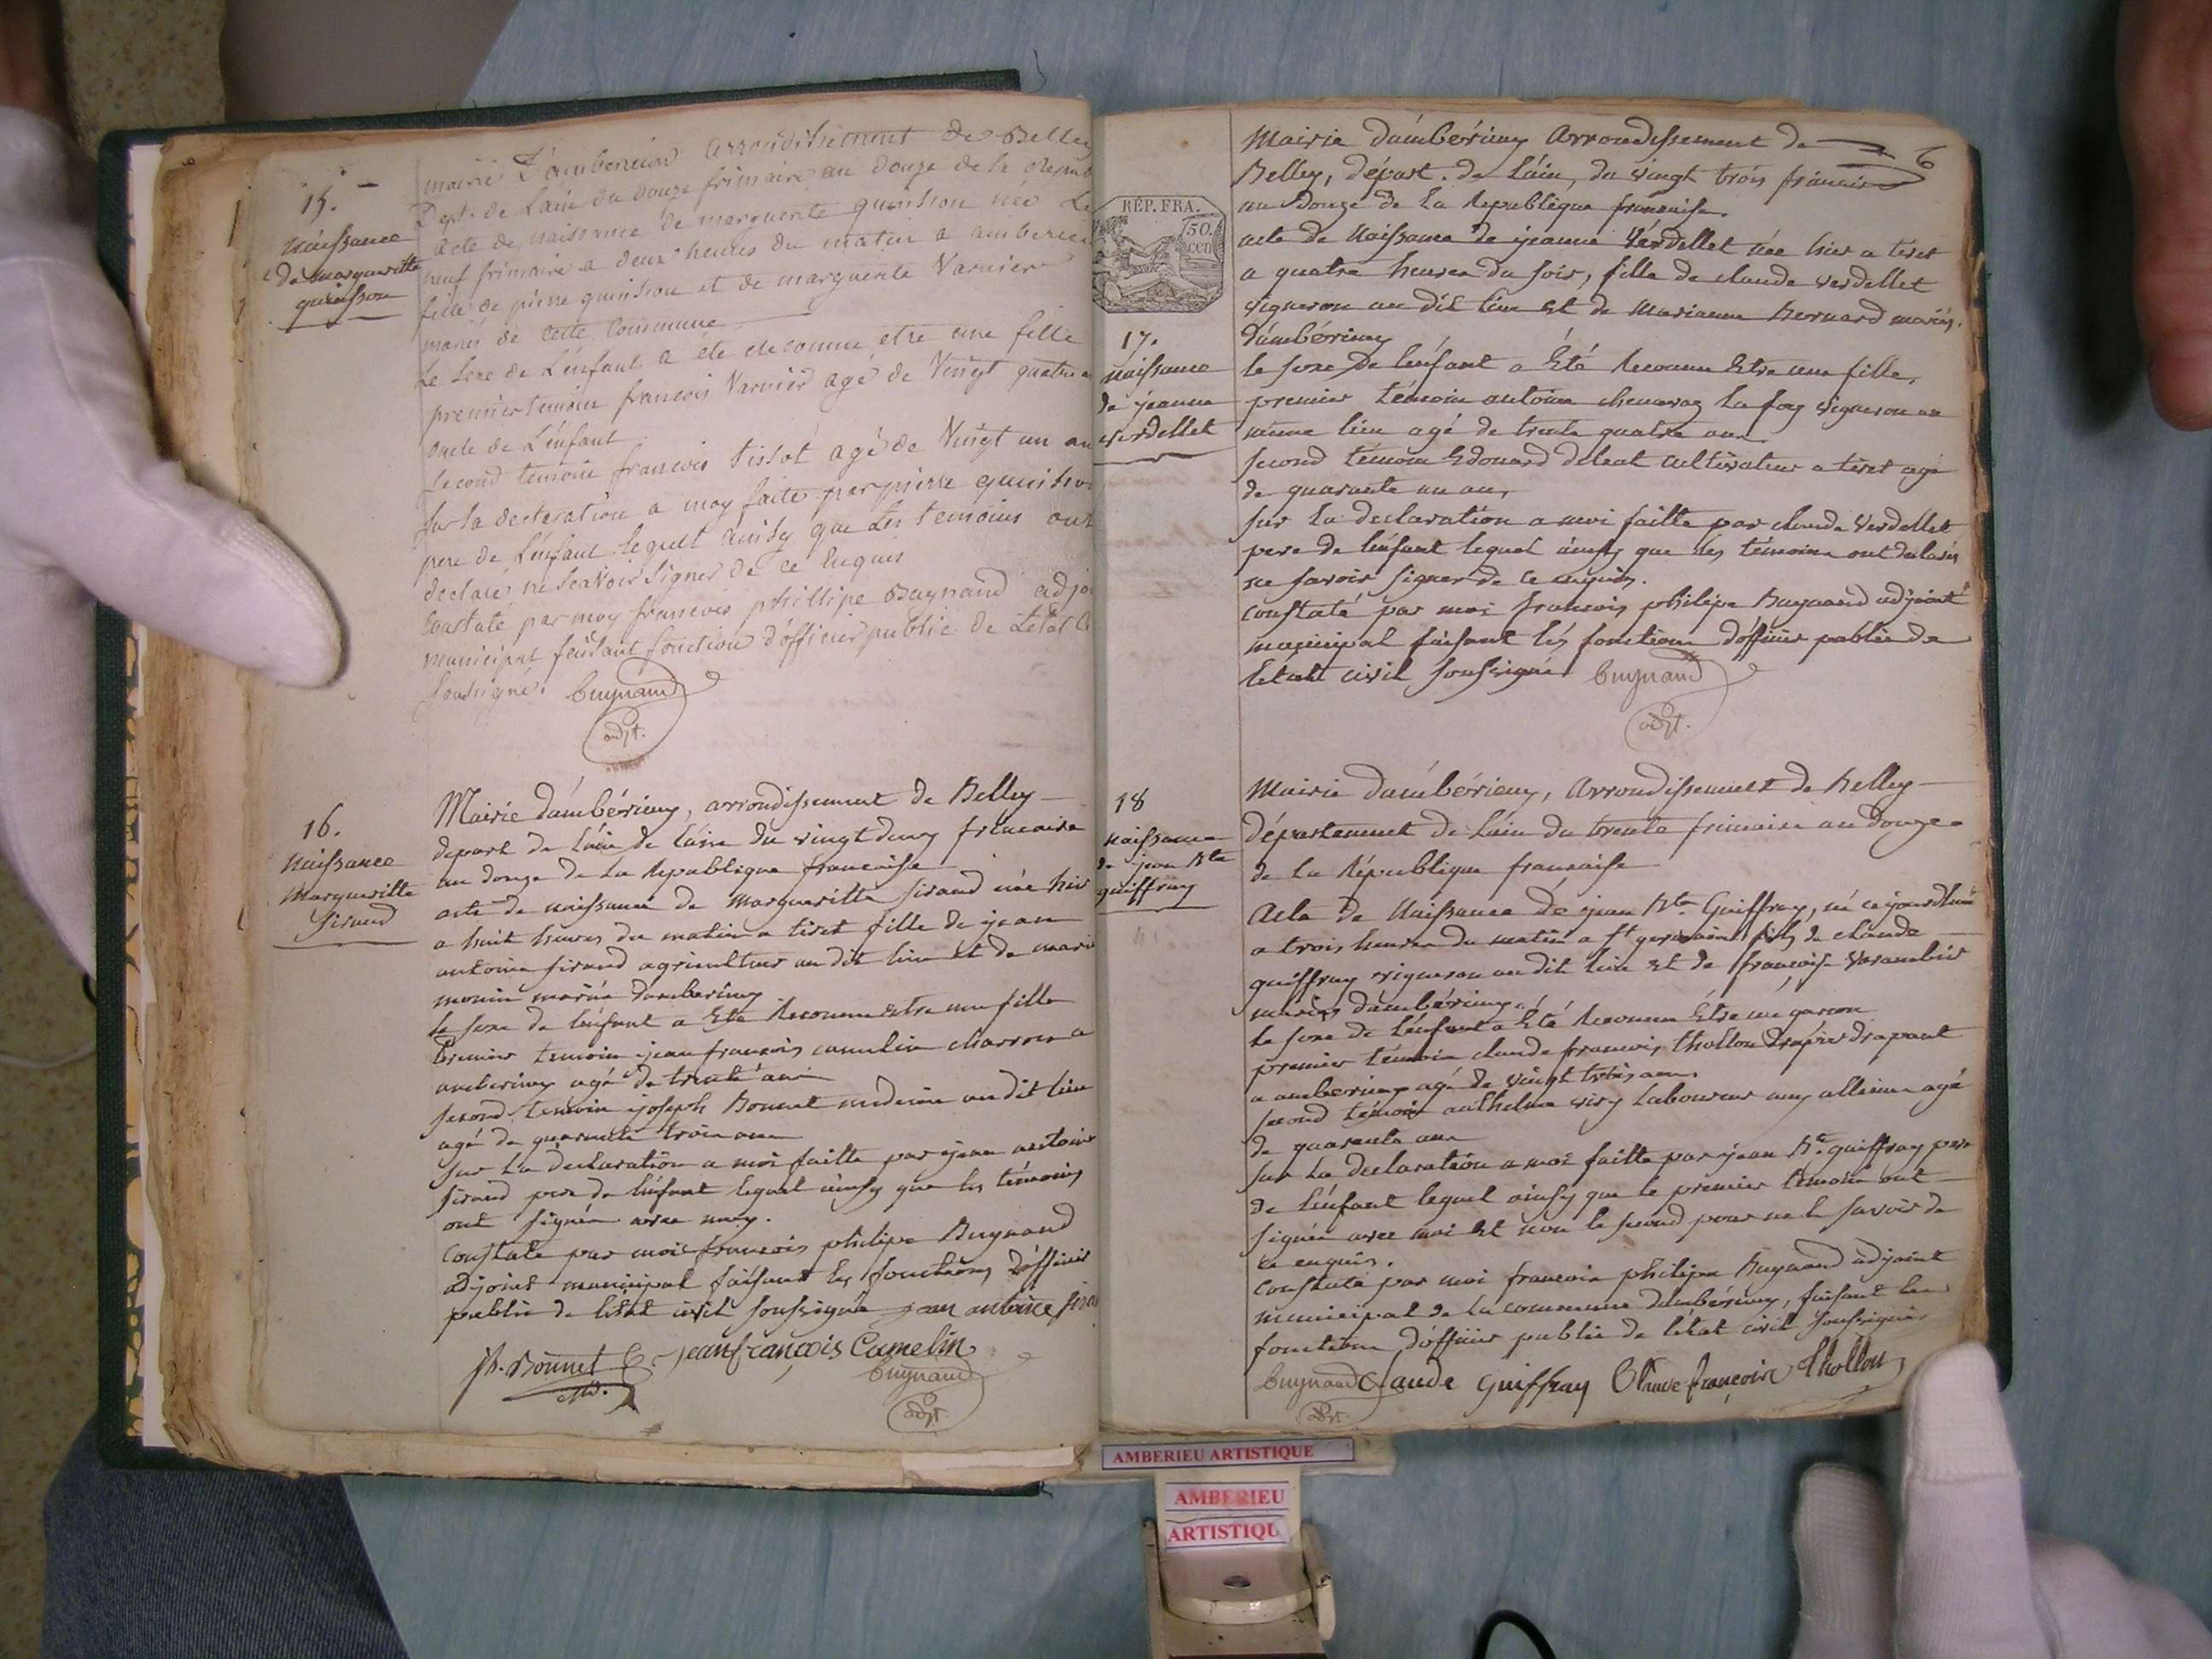 15.
naissance
de margueritte
quinson
mairie D'amberieux arrondissement de Belley
Dept. de Lain du douze frimaire an douze de la Repub
acte de naissance de marguerite quinson née Le
neuf frimaire a deux heures du matin a amberieu
fille de pierre quinson et de marguerite Varnier
mariés de cette Commune
Le sexe de L'enfant a été reconnu etre une fille
premier temoin francois Varnier agé de Vingt quatre an
oncle de L'enfant
Second temoin francois tissot agé de Vingt un an
sur la declaration a moy faite par pierre quinson
pere de L'enfant lequel ainsy que Les temoins ont
declaré ne scavoir signer de ce Enquis
Constaté par moy francois phillipe Bugnand adjoi
municipal faisant fonction d'officier public de L'etat C
soussigné. Cuynand
adjt.
16.
naissance
Margueritte
Sirand
Mairie d'ambérieux, arrondissement de Belley
depart de Láin de láin du vingt deux frimaire
an douze de La Republique francaise
acte de naissance de Margueritte Sirand née hier
a huit heures du matin a tiret fille de jean
antoine Sirand agriculteur au dit lieu et de marie
monin mariés d'amberieux
le sexe de l'enfant a Eté Reconnu estre une fille
Premier temoin jean francois camelin charron a
amberieux agé de trente ans
second temoin joseph Bonnet medecin au dit lieu
agé de quarante trois ans
sur La déclaration a moi faitte par jean antoine
Sirand pere de l'enfant lequel ainsy que les témoins
ont signés avec moy.
Constaté par moi francois philipe Bugnand
adjoint municipal faisant les fonctions d'officier
public de l'état civil soussigné jean antoine sira
jh. Bonnet jean françois Camelin
md. Cuynand
adjt.
6
RÉP. FRA.
50.
cen
Mairie d'ambérieux Arrondissement de
Belley, départ. de Láin, du vingt trois frimaire
an Douze de La Republique francaise.
acte de Naissance de jeanne Verdellet née hier a tiret
a quatre heures du soir, fille de claude verdellet
vigneron au dit lieu et de Marianne Bernard mariés.
d'ambérieux
17.
naissance
de jeanne
verdellet
le sexe de l'enfant a Eté Reconnu Etre une fille,
premier témoin antoine chenavaz La foy vigneron au
même lieu agé de trente quatre ans
second témoin Edouard deleat cultivateur a tiret agé
de quarante un an,
sur La declaration a moi faitte par claude Verdellet
pere de l'enfant lequel ainsy que les témoins ont declarés
ne savoir signer de ce enquis.
Constaté par moi francois philipe Bugnand adjoint
municipal faisant les fonctions d'officier public de
l'etat civil soussigné Cuynand
adjt.
18
naissance
de jean Bte
guiffray
Mairie d'ambérieux, Arrondissement de Belley
département de Láin du trente frimaire an douze
de la République francaise
Acte de Naissance de jean Bte. Guiffray, né ce jourdhui
a trois heures du matin a St germain fils de claude
guiffray vigneron au dit lieu et de françoise
mariés d'ambérieux.
Le sexe de L'enfant a Eté Reconnu Etre un garcon
premier témoin claude francois thollon drapier drapant
a amberieux agé de vingt trois ans.
second témoin anthelme viry Laboureur aux allimes agé
de quarante ans
sur La declaration a moi faitte par jean Bte. guiffray pere
de L'enfant lequel ainsy que le premier temoin ont
signés avec moi et non le second pour ne le savoir de
ce enquis.
Constaté par moi francois philipe Bugnand adjoint
municipal de La commune d'ambérieux, faisant les
fonctions d'officier public de l'état civil soussigné.
Cuynand Claude Guiffray Claude françois thollon
adjt.
AMBERIEU ARTISTIQUE
AMBERIEU
ARTISTIQU